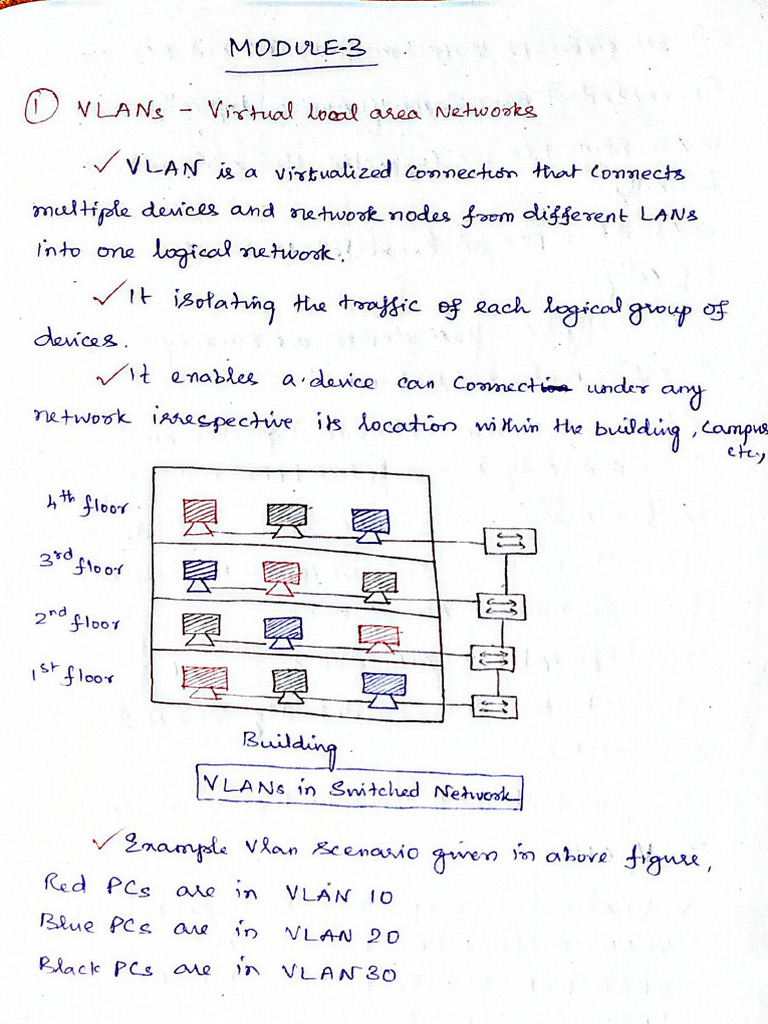 MODULE-3
① VLANs - Virtual local area Networks
✓ VLAN is a virtualized connection that connects
multiple devices and network nodes from different LANs
into one logical network.
✓ It isolating the traffic of each logical group of
devices.
✓ It enables a device can connect under any
network irrespective its location within the building, campus
etc.,
4th floor
3rd floor
2nd floor
1st floor
Building.
VLANs in Switched Network
✓ Example Vlan scenario given in above figure,
Red PCs are in VLAN 10
Blue PCs are in VLAN 20
Black PCs are in VLAN 30